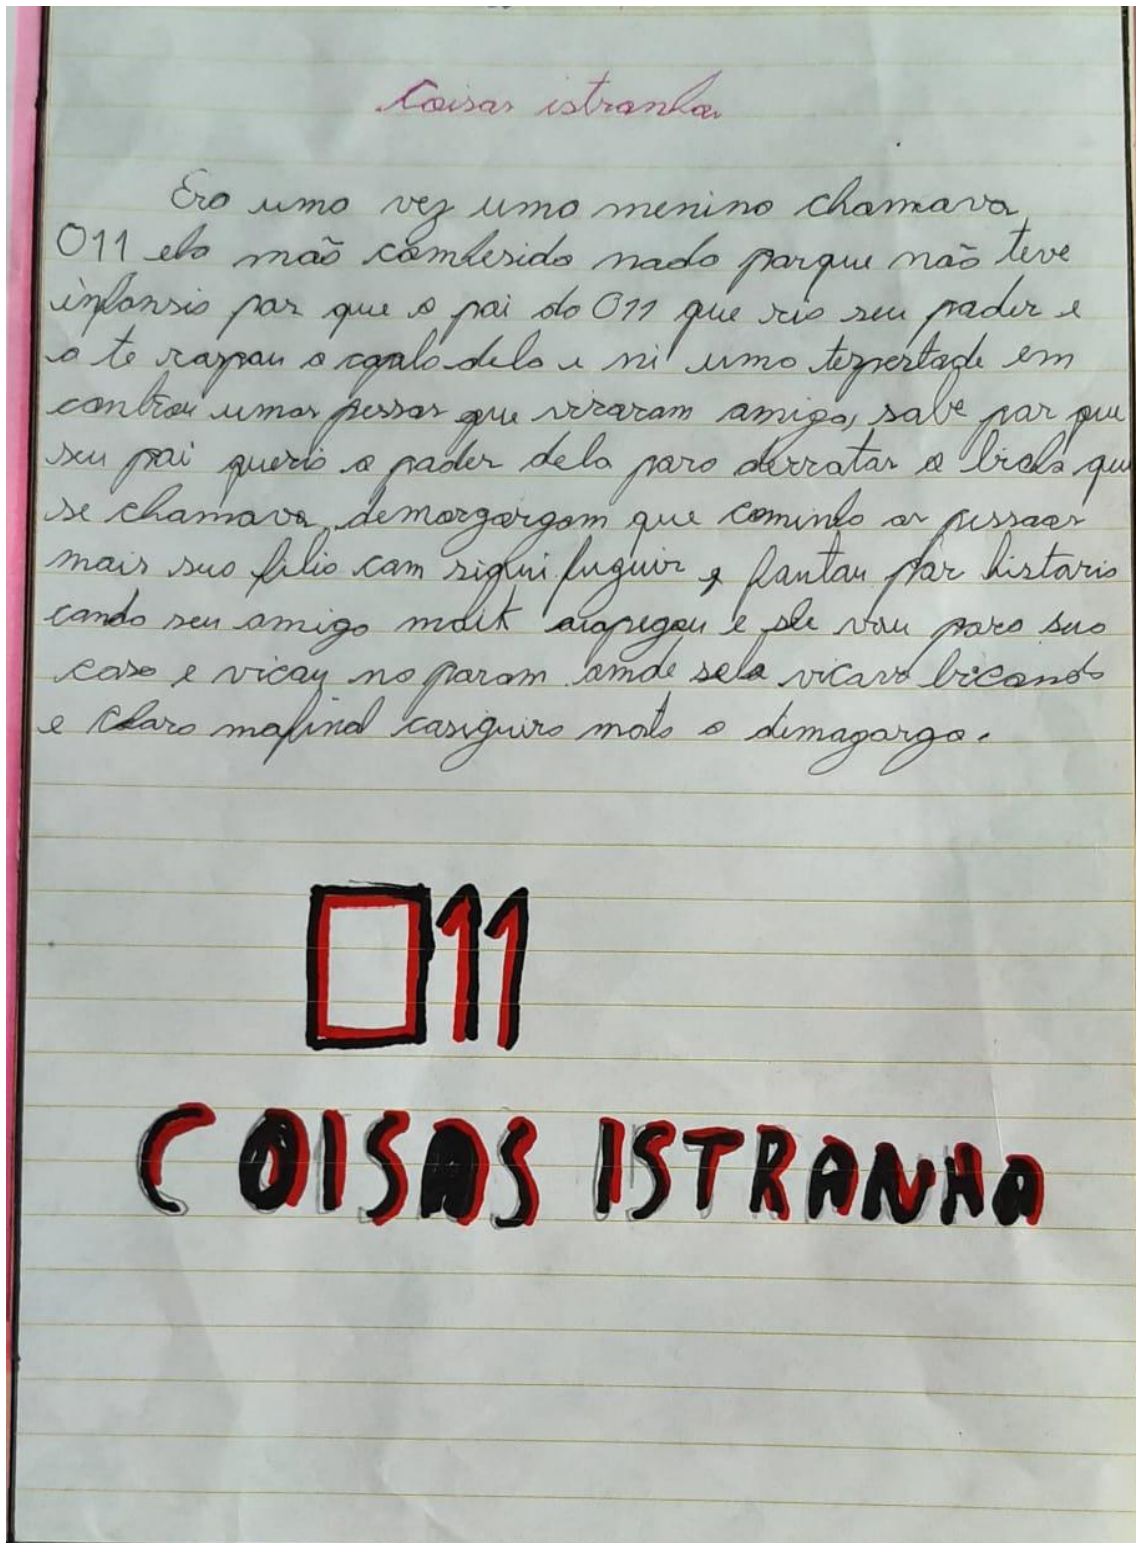 Coisas istranha
Era uma vez uma menina chamava
011 ela não comhesida nada porque não teve
infansia por que o pai do 011 que ria seu poder e
a te raspou o cabalo dela e ni uma tespertade em
controu umas pessoas que viraram amiga, sabe por que
seu pai queria o poder dela para derrotar o bicho que
se chamava demorgorgom que cominho as pessoas
mais sua filia com sigui fuguir e fautau por historia
cando seu amigo maik a pegou e ele vou para sua
casa e vicou no poram omde sela vicava bricando
e claro mafinal casiguiro mata o dimagorgo.
011
COISAS ISTRANHA